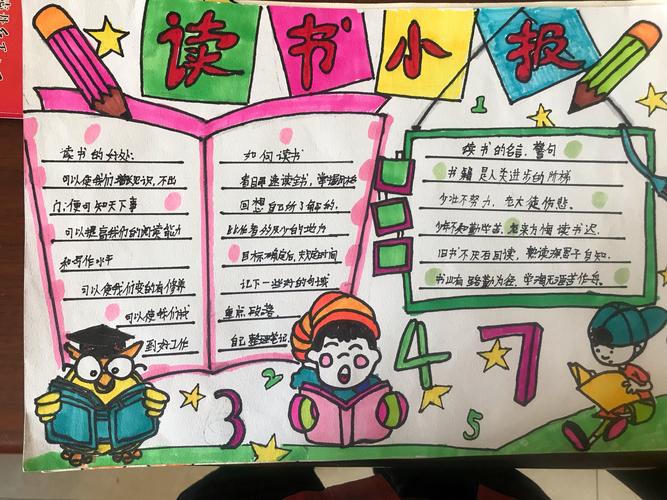 读书小报
读书的好处:
可以使我们增长知识,不出
门,便可知天下事
可以提高我们的阅读能力
和写作水平
可以使我们变的有修养
可以使我们找
到好工作
如何读书
省目录速读全书,掌握风格
回想自己所了解的,
目标确定后,大段的时间
记下一些好的句读
重点 段落
自己整理笔记
读书的名言,警句
书籍是人类进步的阶梯
少壮不努力,老大徒伤悲
少年不知勤学苦,老来方悔读书迟。
旧书不厌百回读,熟读深思子自知。
书山有路勤为径,学海无涯苦作舟。
1
2
3
4
5
7